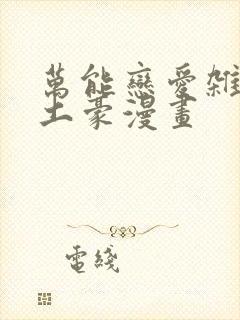 萬能戀愛雜
土豪漫畫
電綫